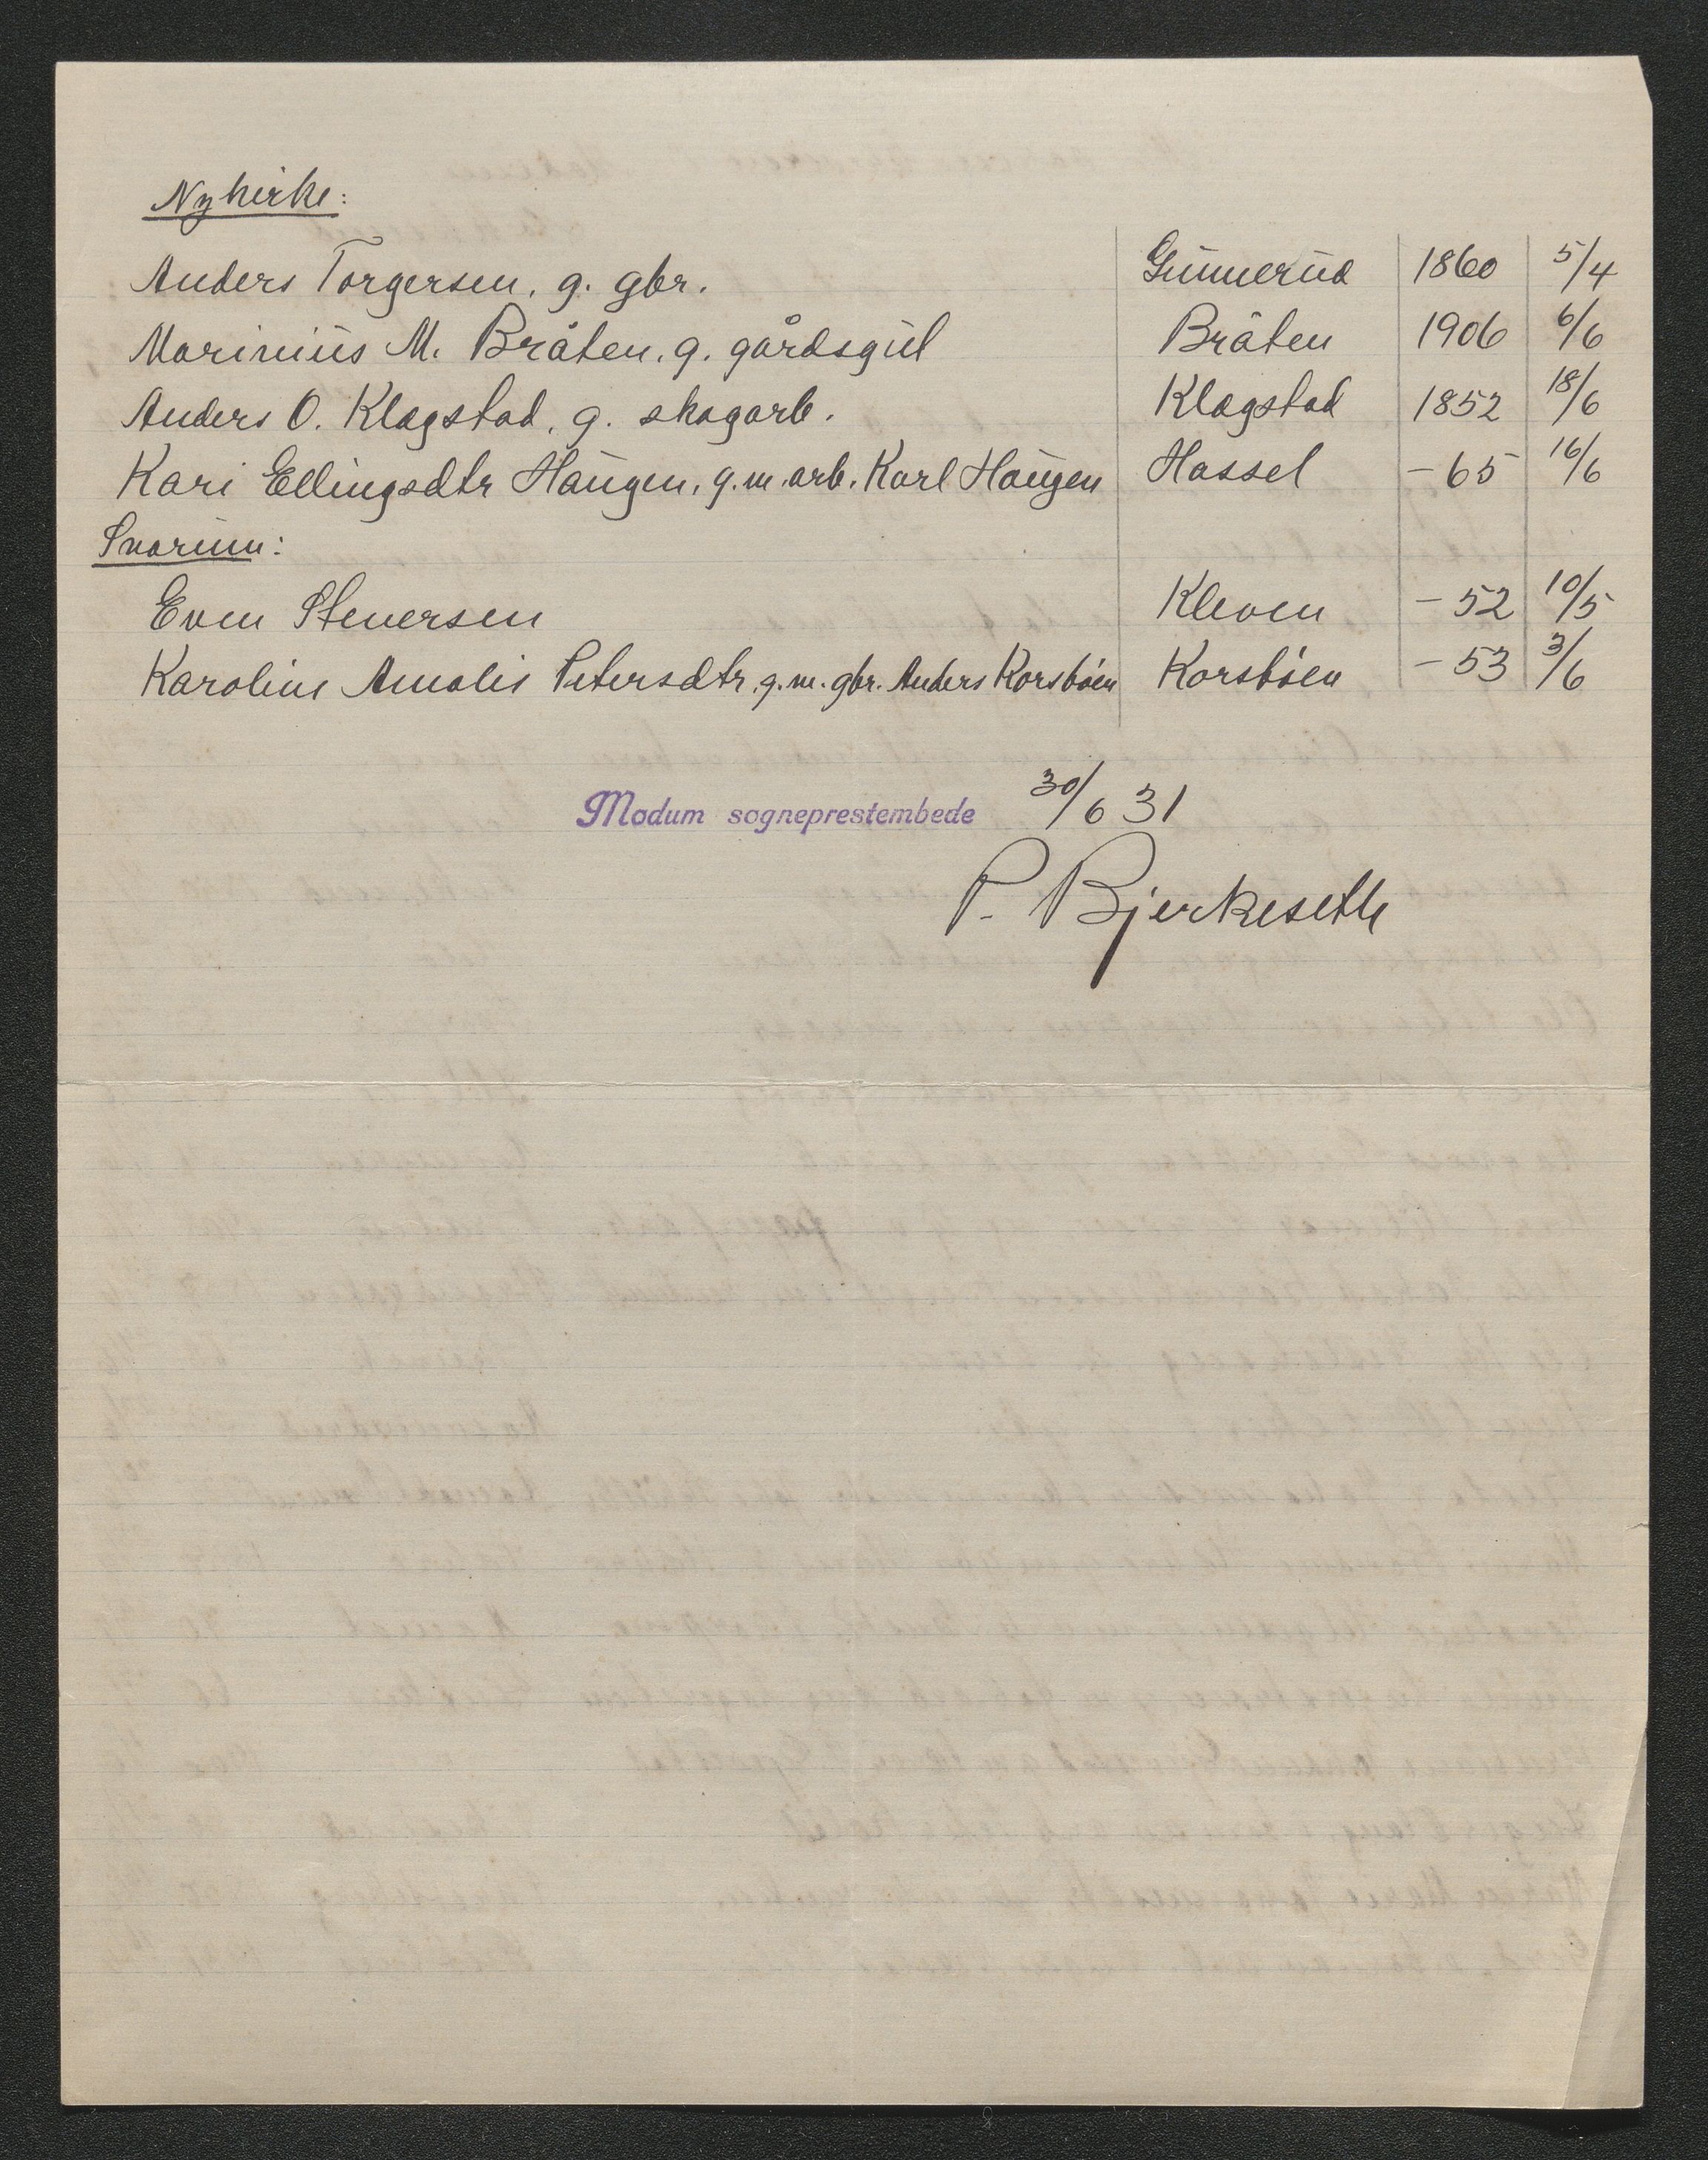 Nykirke:
Anders Torgersen, g. gbr. Gunnerud 1860 5/4
Marinius M. Bråten, g. gårdsgut Bråten 1906 6/6
Anders O. Klagstad, g. skogarb. Klagstad 1852 18/6
Kari Ellingsdtr Haugen, g.m. arb. Karl Haugen Hassel - 65 16/6
Snarum:
Even Stenersen Kleven - 52 10/5
Karoline Amalie Petersdtr, g.m. gbr. Anders Korsbøen Korsbøen - 53 3/6
Modum sogneprestembede 30/6 31
P. Bjerkeseth